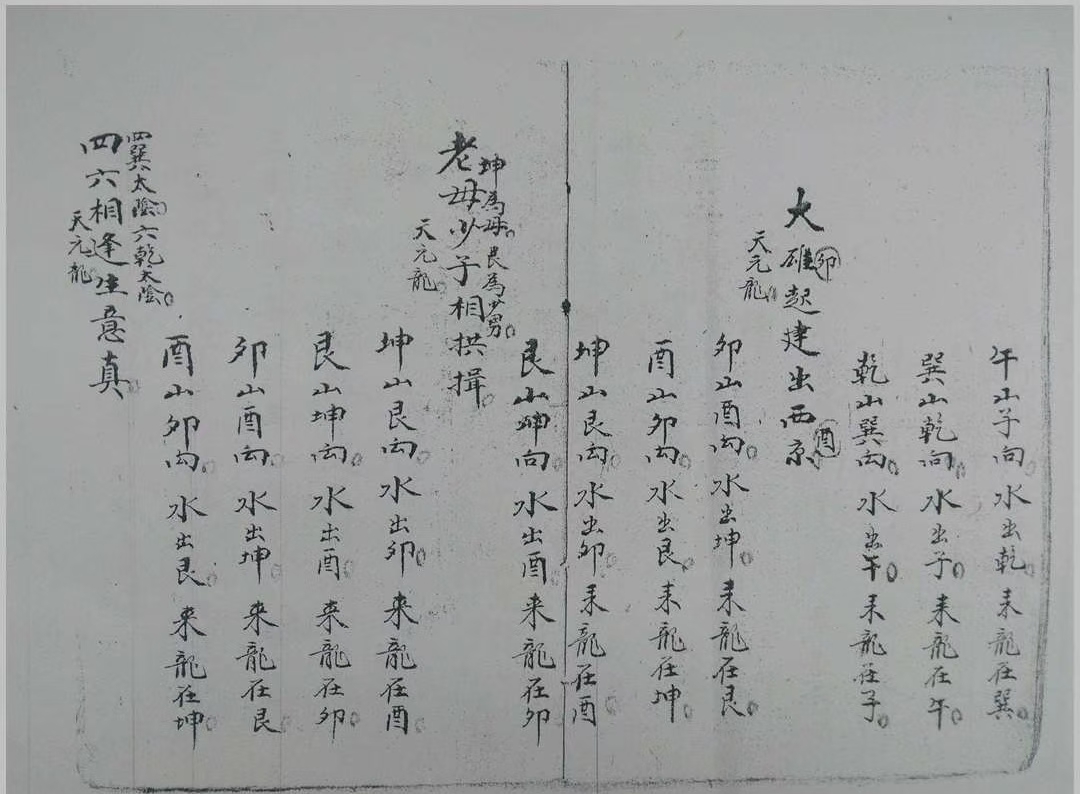 午山子向。水出乾。来龍在巽。
巽山乾向。水出子。来龍在午。
乾山巽向。水出午。来龍在子。
大碓起建出西京
卯
酉
天元龍。
卯山酉向。水出坤。来龍在艮。
酉山卯向。水出艮。来龍在坤。
坤山艮向。水出卯。来龍在酉
艮山坤向。水出酉。来龍在卯
坤為母。艮為少男。
老母少子相拱揖。
天元龍。
坤山艮向。水出卯。来龍在酉
艮山坤向。水出酉。来龍在卯。
卯山酉向。水出坤。来龍在艮
酉山卯向。水出艮。来龍在坤。
四巽太陰。六乾太陰。
四六相逢生意真。
天元龍。